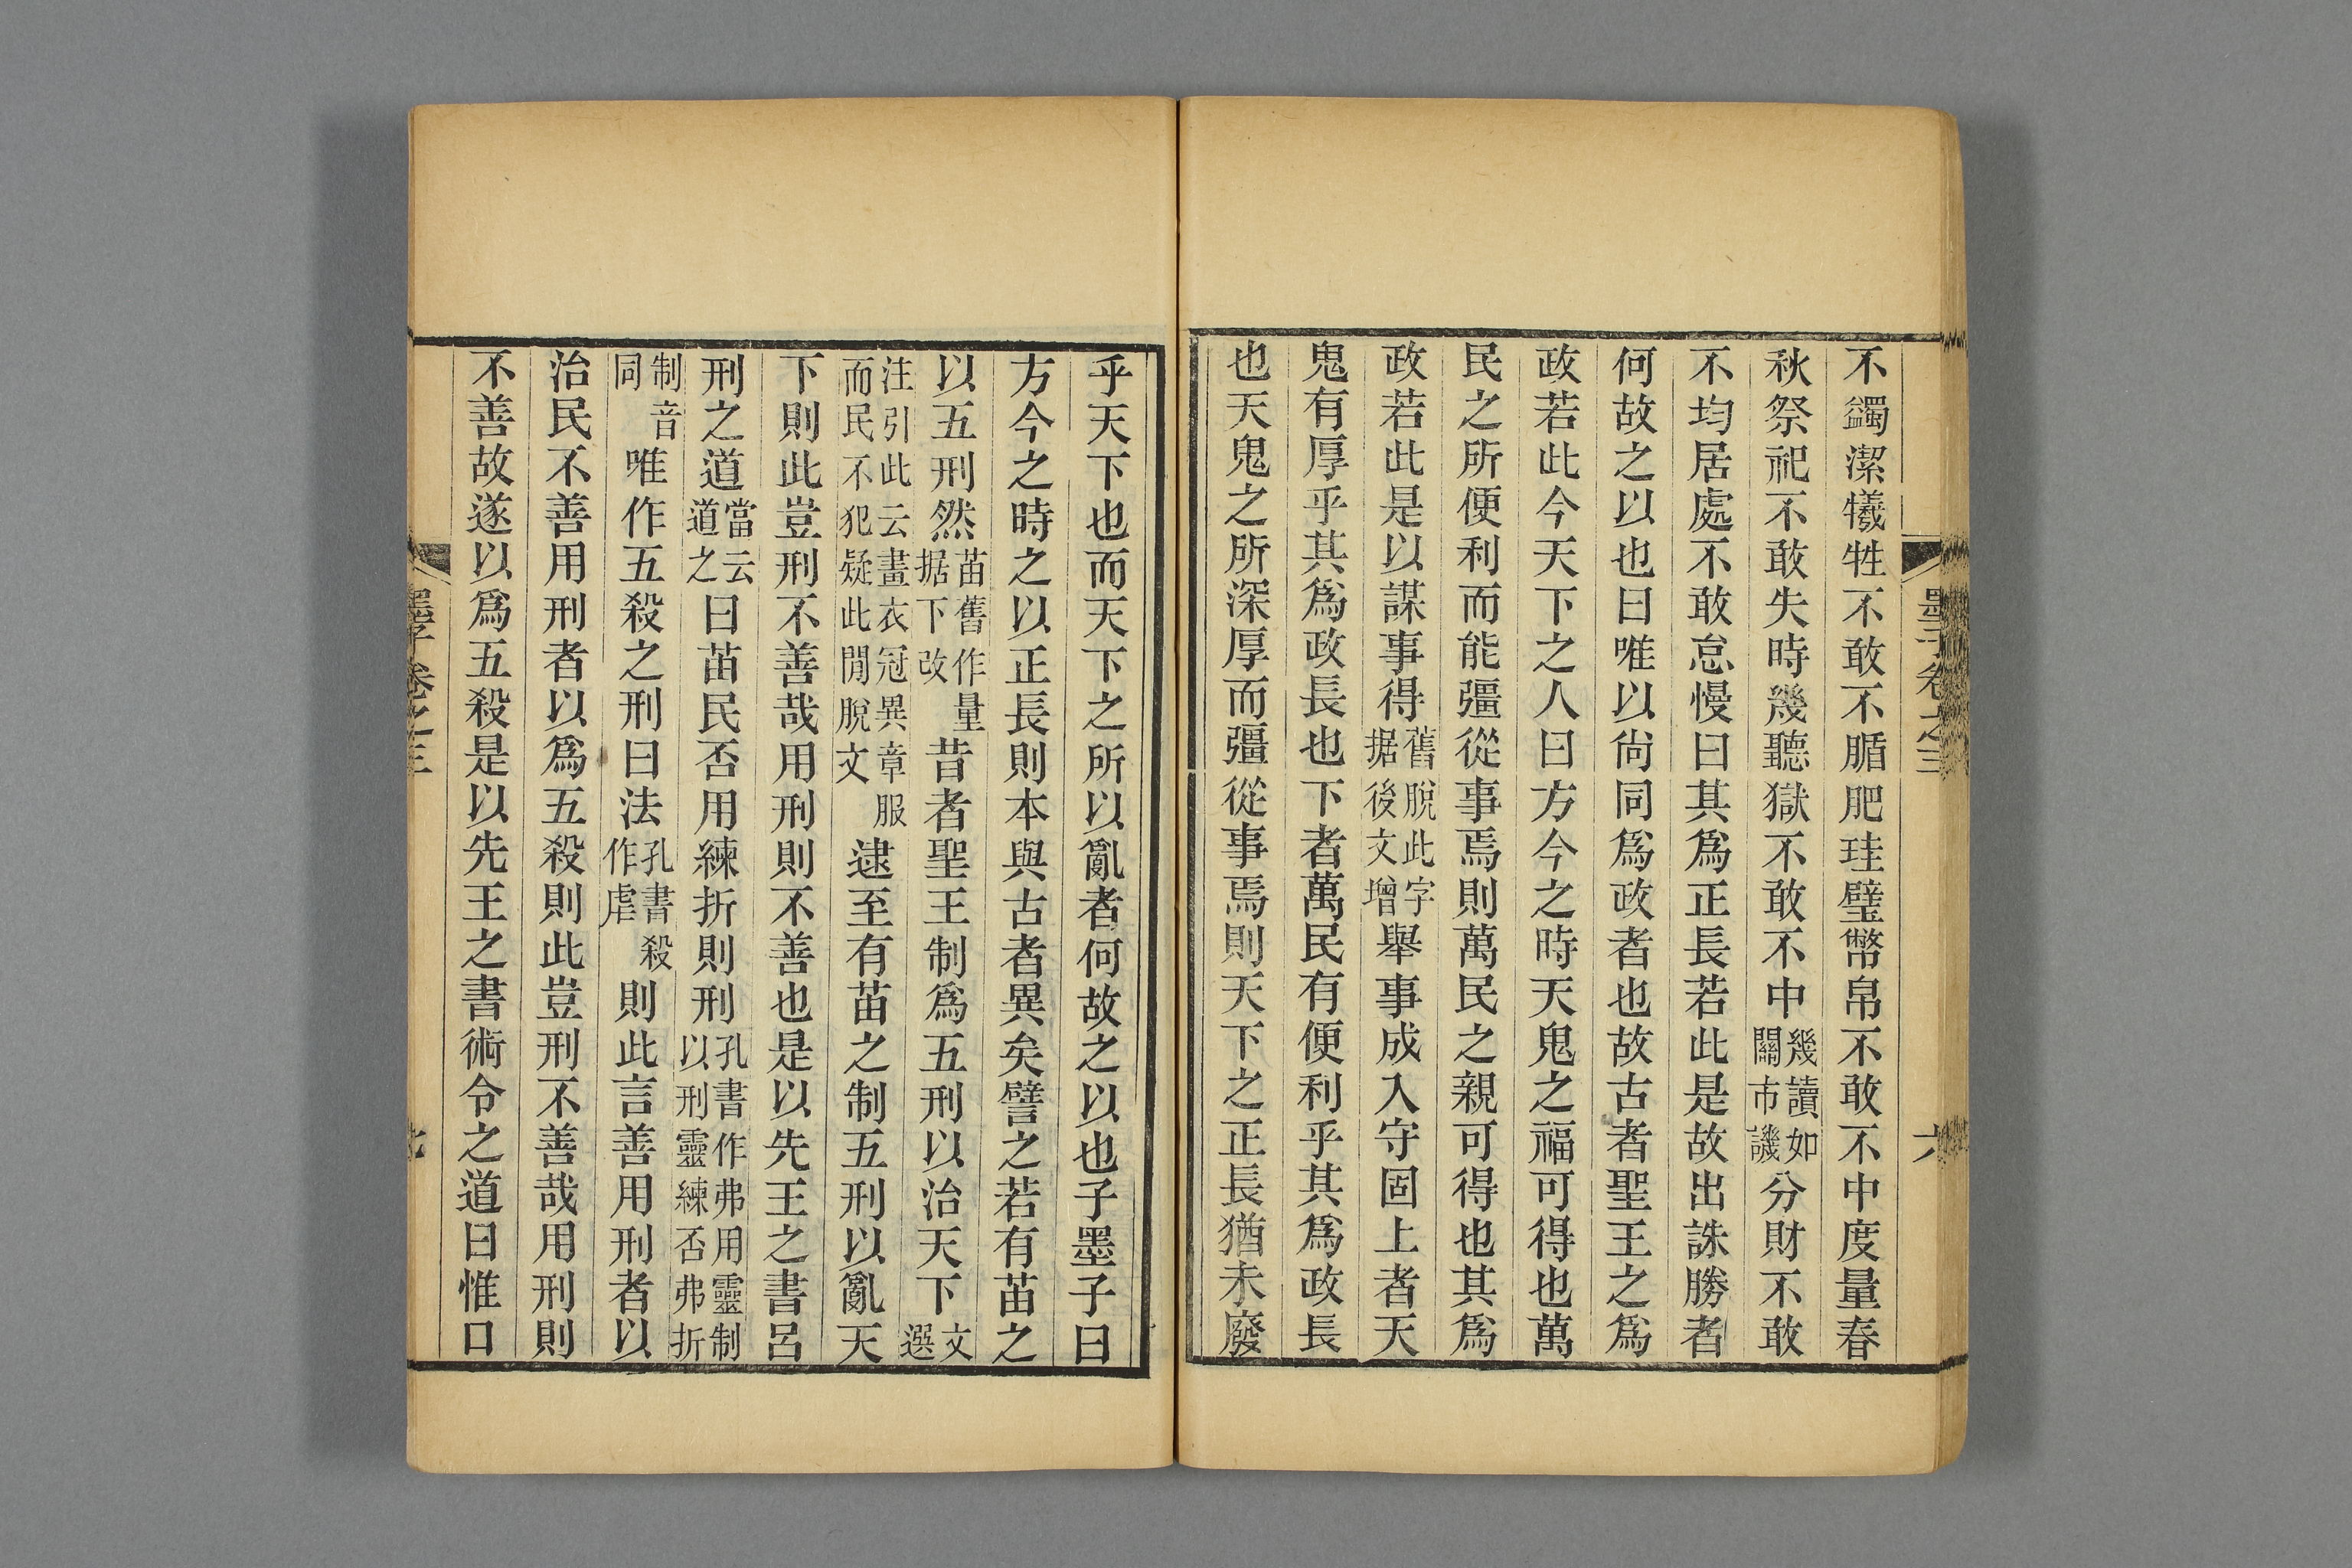 墨子卷之三 六
不蠲潔犧牲不敢不腯肥珪璧幣帛不敢不中度量春
秋祭祀不敢失時幾聽獄不敢不中幾讀如關市譏分財不敢
不均居處不敢怠慢曰其爲正長若此是故出誅勝者
何故之以也曰唯以尙同爲政者也故古者聖王之爲
政若此今天下之人曰方今之時天鬼之福可得也萬
民之所便利而能彊從事焉則萬民之親可得也其爲
政若此是以謀事得舊脫此字据後文增舉事成入守固上者天
鬼有厚乎其爲政長也下者萬民有便利乎其爲政長
也天鬼之所深厚而彊從事焉則天下之正長猶未廢
乎天下也而天下之所以亂者何故之以也子墨子曰
方今之時之以正長則本與古者異矣譬之若有苗之
以五刑然苗舊作量据下改昔者聖王制爲五刑以治天下文選
注引此云畫衣冠異章服而民不犯疑此閒脫文逮至有苗之制五刑以亂天
下則此豈刑不善哉用刑則不善也是以先王之書呂
刑之道當云道之曰苗民否用練折則刑孔書作弗用靈制以刑靈練否弗折
制音同唯作五殺之刑曰法孔書殺作虐則此言善用刑者以
治民不善用刑者以爲五殺則此豈刑不善哉用刑則
不善故遂以爲五殺是以先王之書術令之道曰惟口
墨子卷之三